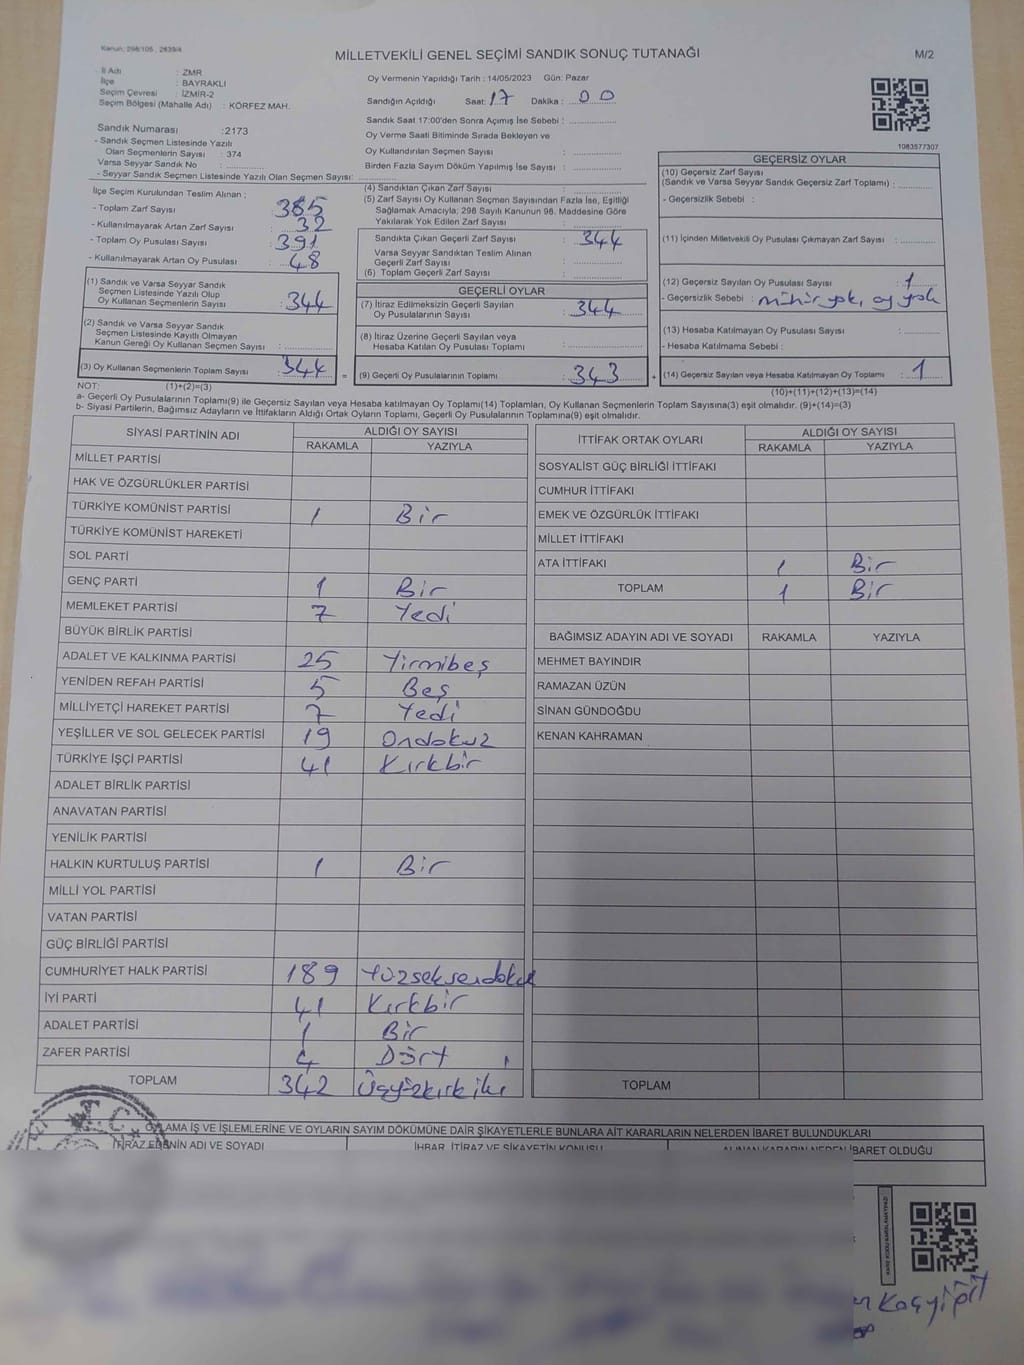 Kanun; 298/105 , 2839/4
MİLLETVEKİLİ GENEL SEÇİMİ SANDIK SONUÇ TUTANAĞI
M/2
İl Adı : ZMR
İlçe : BAYRAKLI
Seçim Çevresi : İZMİR-2
Seçim Bölgesi (Mahalle Adı) : KÖRFEZ MAH.
Oy Vermenin Yapıldığı Tarih : 14/05/2023 Gün: Pazar
Sandığın Açıldığı Saat: 17 Dakika : 00
Sandık Saat 17:00'den Sonra Açımış İse Sebebi :
Oy Verme Saati Bitiminde Sırada Bekleyen ve
Oy Kullandırılan Seçmen Sayısı :
Birden Fazla Sayım Döküm Yapılmış İse Sayısı :
1083577307
Sandık Numarası :2173
- Sandık Seçmen Listesinde Yazılı
Olan Seçmenlerin Sayısı : 374
Varsa Seyyar Sandık No :
- Seyyar Sandık Seçmen Listesinde Yazılı Olan Seçmen Sayısı:
İlçe Seçim Kurulundan Teslim Alınan ;
- Toplam Zarf Sayısı : 385
- Kullanılmayarak Artan Zarf Sayısı : 32
- Toplam Oy Pusulası Sayısı : 391
- Kullanılmayarak Artan Oy Pusulası : 48
(1) Sandık ve Varsa Seyyar Sandık
Seçmen Listesinde Yazılı Olup
Oy Kullanan Seçmenlerin Sayısı : 344
(2) Sandık ve Varsa Seyyar Sandık
Seçmen Listesinde Kayıtlı Olmayan
Kanun Gereği Oy Kullanan Seçmen Sayısı :
(3) Oy Kullanan Seçmenlerin Toplam Sayısı : 344 =
(4) Sandıktan Çıkan Zarf Sayısı :
(5) Zarf Sayısı Oy Kullanan Seçmen Sayısından Fazla İse, Eşitliği
Sağlamak Amacıyla; 298 Sayılı Kanunun 98. Maddesine Göre
Yakılarak Yok Edilen Zarf Sayısı :
Sandıkta Çıkan Geçerli Zarf Sayısı : 344
Varsa Seyyar Sandıktan Teslim Alınan
Geçerli Zarf Sayısı :
(6) Toplam Geçerli Zarf Sayısı :
GEÇERLİ OYLAR
(7) İtiraz Edilmeksizin Geçerli Sayılan
Oy Pusulalarının Sayısı : 344
(8) İtiraz Üzerine Geçerli Sayılan veya
Hesaba Katılan Oy Pusulası Toplamı :
(9) Geçerli Oy Pusulalarının Toplamı : 343 +
GEÇERSİZ OYLAR
(10) Geçersiz Zarf Sayısı
(Sandık ve Varsa Seyyar Sandık Geçersiz Zarf Toplamı) :
- Geçersizlik Sebebi :
(11) İçinden Milletvekili Oy Pusulası Çıkmayan Zarf Sayısı :
(12) Geçersiz Sayılan Oy Pusulası Sayısı : 1
- Geçersizlik Sebebi : mühür yok, oy yok
(13) Hesaba Katılmayan Oy Pusulası Sayısı :
- Hesaba Katılmama Sebebi :
(14) Geçersiz Sayılan veya Hesaba Katılmayan Oy Toplamı : 1
NOT: (1)+(2)=(3)
(10)+(11)+(12)+(13)=(14)
a- Geçerli Oy Pusulalarının Toplamı(9) ile Geçersiz Sayılan veya Hesaba katılmayan Oy Toplamı(14) Toplamları, Oy Kullanan Seçmenlerin Toplam Sayısına(3) eşit olmalıdır. (9)+(14)=(3)
b- Siyasi Partilerin, Bağımsız Adayların ve İttifakların Aldığı Ortak Oyların Toplamı, Geçerli Oy Pusulalarının Toplamına(9) eşit olmalıdır.
SİYASİ PARTİNİN ADI ALDIĞI OY SAYISI
RAKAMLA YAZIYLA
MİLLET PARTİSİ
HAK VE ÖZGÜRLÜKLER PARTİSİ
TÜRKİYE KOMÜNİST PARTİSİ 1 Bir
TÜRKİYE KOMÜNİST HAREKETİ
SOL PARTİ
GENÇ PARTİ 1 Bir
MEMLEKET PARTİSİ 7 Yedi
BÜYÜK BİRLİK PARTİSİ
ADALET VE KALKINMA PARTİSİ 25 Yirmibeş
YENİDEN REFAH PARTİSİ 5 Beş
MİLLİYETÇİ HAREKET PARTİSİ 7 Yedi
YEŞİLLER VE SOL GELECEK PARTİSİ 19 Ondokuz
TÜRKİYE İŞÇİ PARTİSİ 41 Kırkbir
ADALET BİRLİK PARTİSİ
ANAVATAN PARTİSİ
YENİLİK PARTİSİ
HALKIN KURTULUŞ PARTİSİ 1 Bir
MİLLİ YOL PARTİSİ
VATAN PARTİSİ
GÜÇ BİRLİĞİ PARTİSİ
CUMHURİYET HALK PARTİSİ 189 Yüzseksendokuz
İYİ PARTİ 41 Kırkbir
ADALET PARTİSİ 1 Bir
ZAFER PARTİSİ 4 Dört
TOPLAM 342 Üçyüzkırkiki
İTTİFAK ORTAK OYLARI ALDIĞI OY SAYISI
RAKAMLA YAZIYLA
SOSYALİST GÜÇ BİRLİĞİ İTTİFAKI
CUMHUR İTTİFAKI
EMEK VE ÖZGÜRLÜK İTTİFAKI
MİLLET İTTİFAKI
ATA İTTİFAKI 1 Bir
TOPLAM 1 Bir
BAĞIMSIZ ADAYIN ADI VE SOYADI RAKAMLA YAZIYLA
MEHMET BAYINDIR
RAMAZAN ÜZÜN
SİNAN GÜNDOĞDU
KENAN KAHRAMAN
TOPLAM
T.C.
OYLAMA İŞ VE İŞLEMLERİNE VE OYLARIN SAYIM DÖKÜMÜNE DAİR ŞİKAYETLERLE BUNLARA AİT KARARLARIN NELERDEN İBARET BULUNDUKLARI
İTİRAZ EDENİN ADI VE SOYADI İHBAR, İTİRAZ VE ŞİKAYETİN KONUSU ALINAN KARARIN NEDEN İBARET OLDUĞU
Koçyiğit